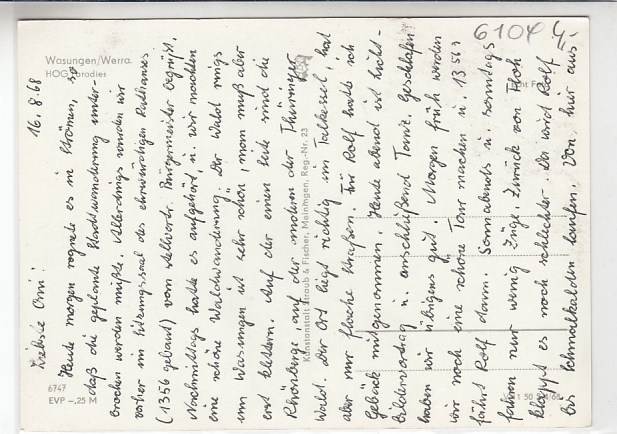 6104 4,-
Wasungen/Werra
HOG Paradies
16.8.68
Liebste Omi!
Heute morgen regnete es in Strömen, so
daß die geplante Stadtwanderung unter-
brochen werden mußte. Allerdings wurden wir
vorher im Sitzungssaal des ehrwürdigen Rathauses
(1356 gebaut) vom stellvertr. Bürgermeister begrüßt.
Nachmittags hatte es aufgehört, u. wir machten
eine schöne Waldwanderung. Der Wald rings
um Wasungen ist sehr schön, man muß aber
erst klettern. Auf der einen Seite sind die
Rhönberge, auf der anderen der Thüringer
Wald. Der Ort liegt richtig im Talkessel, hat
aber nur flache Straßen. Für Rolf hatte ich
Gebäck mitgenommen. Heute abend ist Licht-
bildervortrag u. anschließend Tanz. Geschlafen
haben wir übrigens gut. Morgen früh werden
wir noch eine schöne Tour machen u. 13 56
fährt Rolf dann. Sonnabends u. sonntags
fahren nur wenig Züge. Zurück von Floh
klappt es noch schlechter. Da wird Rolf
bis Schmalkalden laufen. Von hier aus
Kunstanstalt Straub & Fischer, Meiningen, Reg.-Nr. 23
6747
EVP -,25 M